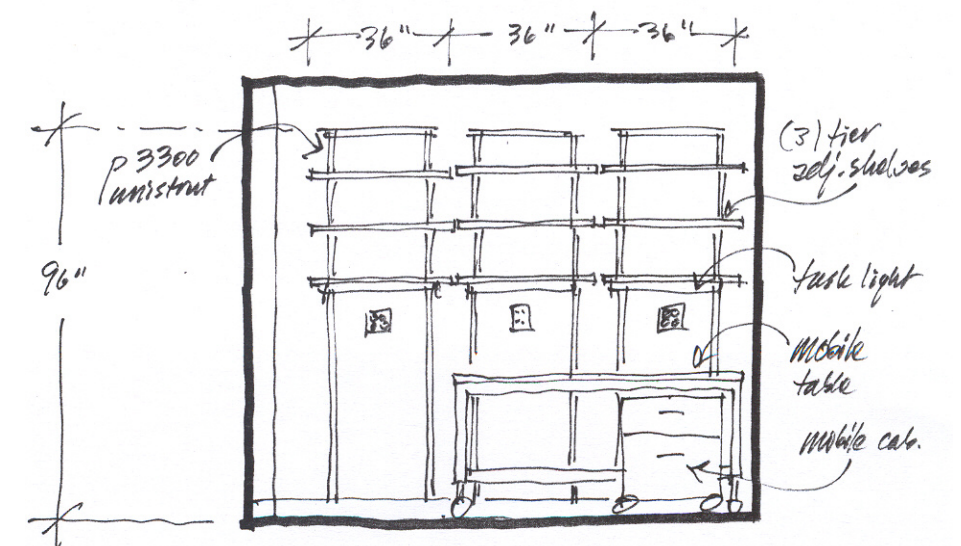 36" 36" 36"
p3300
unistrut
96"
(3) tier
adj. shelves
task light
mobile
table
mobile cab.